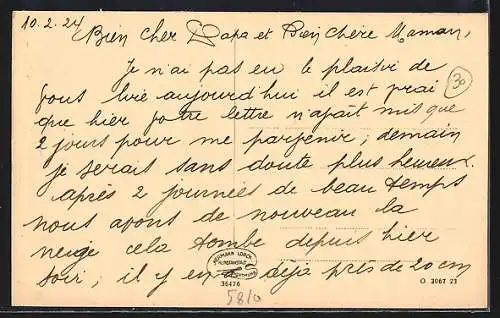 10.2.24
Bien cher Papa et Bien chère Maman,
Je n'ai pas eu le plaisir de
vous lire aujourd'hui il est vrai
que hier votre lettre n'avait mis que
2 jours pour me parvenir; demain
je serais sans doute plus heureux.
après 2 journées de beau temps
nous avons de nouveau la
neige cela tombe depuis hier
soir, il y en a déja près de 20 cm
30
36476
O 3067 23
5810